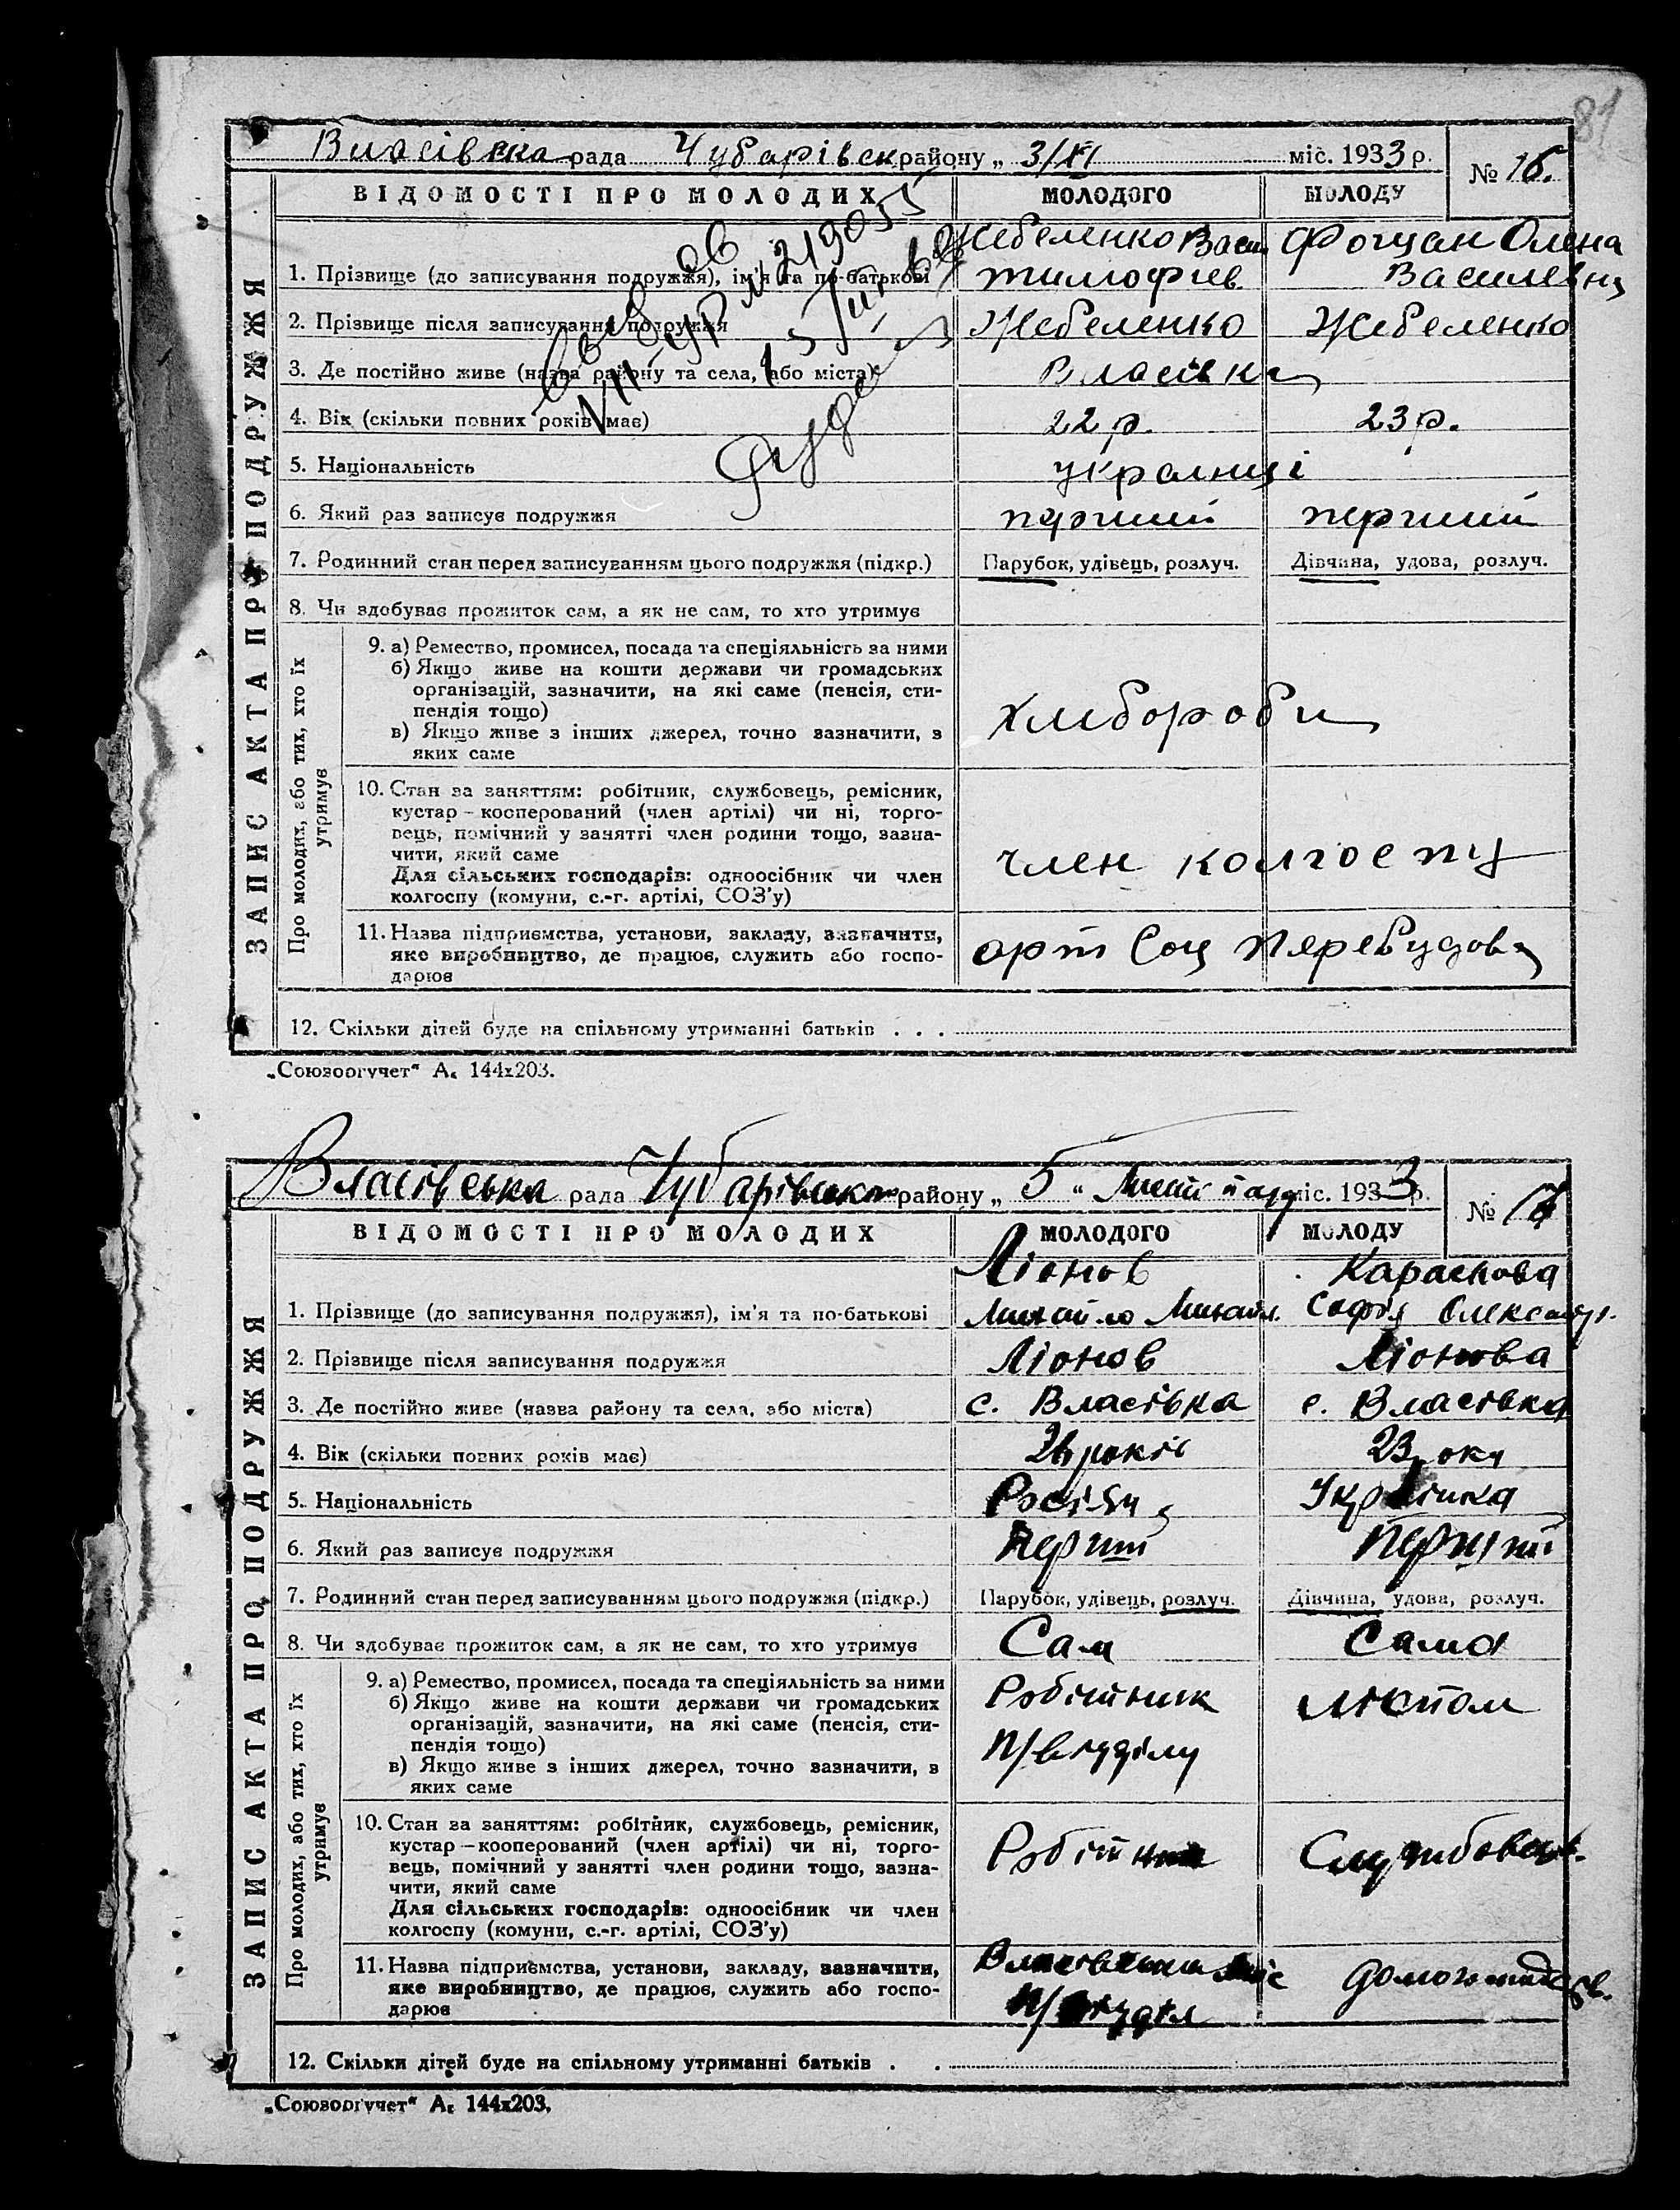 81
Власівська рада Чубарівськ району „ 3/XI міс. 1933 р.
№ 16.
ВІДОМОСТІ ПРО МОЛОДИХ
МОЛОДОГО
МОЛОДУ
ЗАПИС АКТА ПРО ПОДРУЖЖЯ
1. Прізвище (до записування подружжя), ім'я та по-батькові
Жебеленко Васи
Тимофієв
Фощан Олена
Василевна
2. Прізвище після записування подружжя
Жебеленко
Жебеленко
3. Де постійно живе (назва району та села, або міста)
Власівка
4. Вік (скільки повних років має)
22 р.
23 р.
5. Національність
українці
6. Який раз записує подружжя
перший
перший
7. Родинний стан перед записуванням цього подружжя (підкр.)
Парубок, удівець, розлуч.
Дівчина, удова, розлуч.
8. Чи здобуває прожиток сам, а як не сам, то хто утримує
Про молодих, або тих, хто їх утримує
9. а) Ремество, промисел, посада та спеціяльність за ними
б) Якщо живе на кошти держави чи громадських
організацій, зазначити, на які саме (пенсія, сти-
пендія тощо)
в) Якщо живе з інших джерел, точно зазначити, з
яких саме
хлибороби
10. Стан за заняттям: робітник, службовець, ремісник,
кустар – кооперований (член артілі) чи ні, торго-
вець, помічний у занятті член родини тощо, зазна-
чити, який саме
Для сільських господарів: одноосібник чи член
колгоспу (комуни, с.-г. артілі, СОЗ'у)
член колгоспу
11. Назва підприємства, установи, закладу, зазначити,
яке виробництво, де працює, служить або госпо-
дарює
арт Соц Перебудова
12. Скільки дітей буде на спільному утриманні батьків . . .
„Союзоргучет“ А. 144х203.
Власівська рада Чубарівського району „ 5 “ міс. 1933 р.
№
ВІДОМОСТІ ПРО МОЛОДИХ
МОЛОДОГО
МОЛОДУ
ЗАПИС АКТА ПРО ПОДРУЖЖЯ
1. Прізвище (до записування подружжя), ім'я та по-батькові
Ліонов
Михайло Михайл.
Караскова
Софія Олександр.
2. Прізвище після записування подружжя
Ліонов
Ліонова
3. Де постійно живе (назва району та села, або міста)
с. Власівка
с. Власівка
4. Вік (скільки повних років має)
26 років
23 роки
5. Національність
Українка
6. Який раз записує подружжя
Перший
Перший
7. Родинний стан перед записуванням цього подружжя (підкр.)
Парубок, удівець, розлуч.
Дівчина, удова, розлуч.
8. Чи здобуває прожиток сам, а як не сам, то хто утримує
Сам
Сама
Про молодих, або тих, хто їх утримує
9. а) Ремество, промисел, посада та спеціяльність за ними
б) Якщо живе на кошти держави чи громадських
організацій, зазначити, на які саме (пенсія, сти-
пендія тощо)
в) Якщо живе з інших джерел, точно зазначити, з
яких саме
Робітник
10. Стан за заняттям: робітник, службовець, ремісник,
кустар – кооперований (член артілі) чи ні, торго-
вець, помічний у занятті член родини тощо, зазна-
чити, який саме
Для сільських господарів: одноосібник чи член
колгоспу (комуни, с.-г. артілі, СОЗ'у)
Робітник
Службовець
11. Назва підприємства, установи, закладу, зазначити,
яке виробництво, де працює, служить або госпо-
дарює
Власівська
12. Скільки дітей буде на спільному утриманні батьків . .
„Союзоргучет“ А. 144х203.